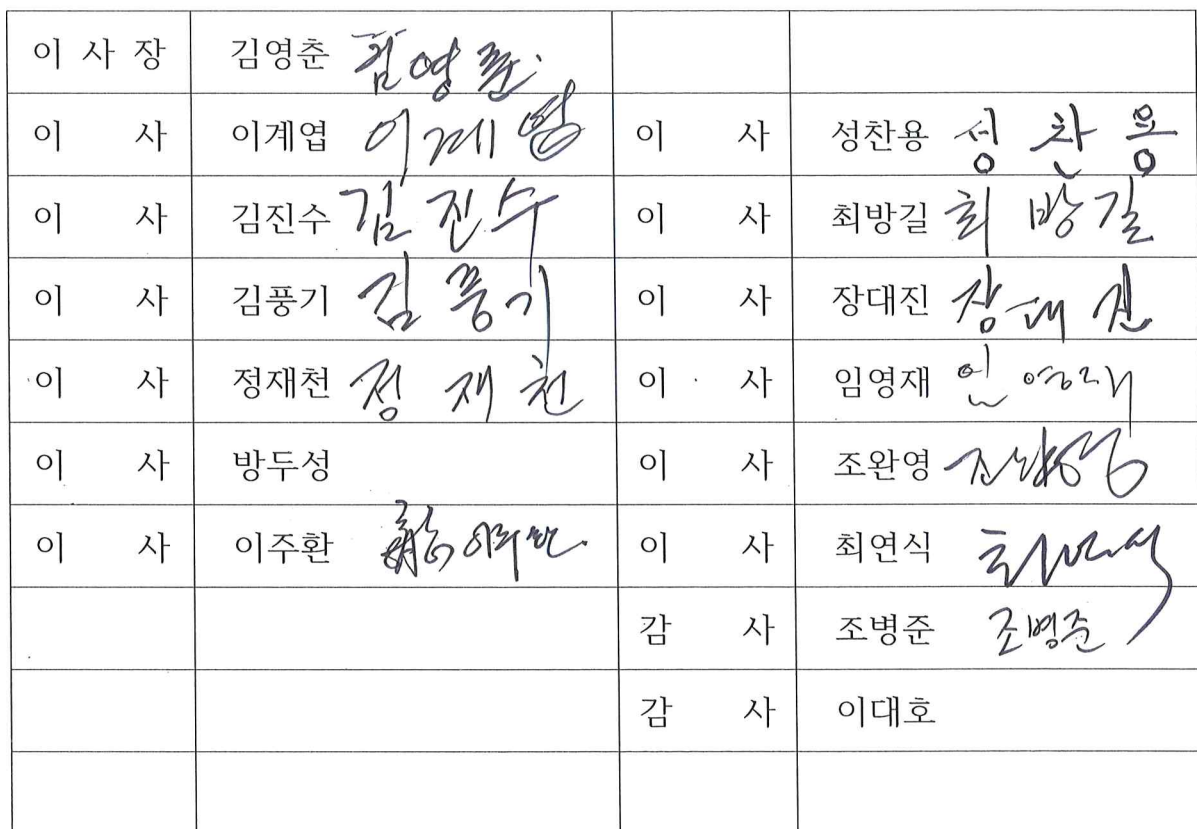 이 사 장 김영춘 김영춘
이 사 이계엽 이계엽 이 사 성찬용 성찬용
이 사 김진수 김진수 이 사 최방길 최방길
이 사 김풍기 김풍기 이 사 장대진 장대진
이 사 정재천 정재천 이 사 임영재 임영재
이 사 방두성 이 사 조완영 조완영
이 사 이주환 이주환 이 사 최연식 최연식
감 사 조병준 조병준
감 사 이대호